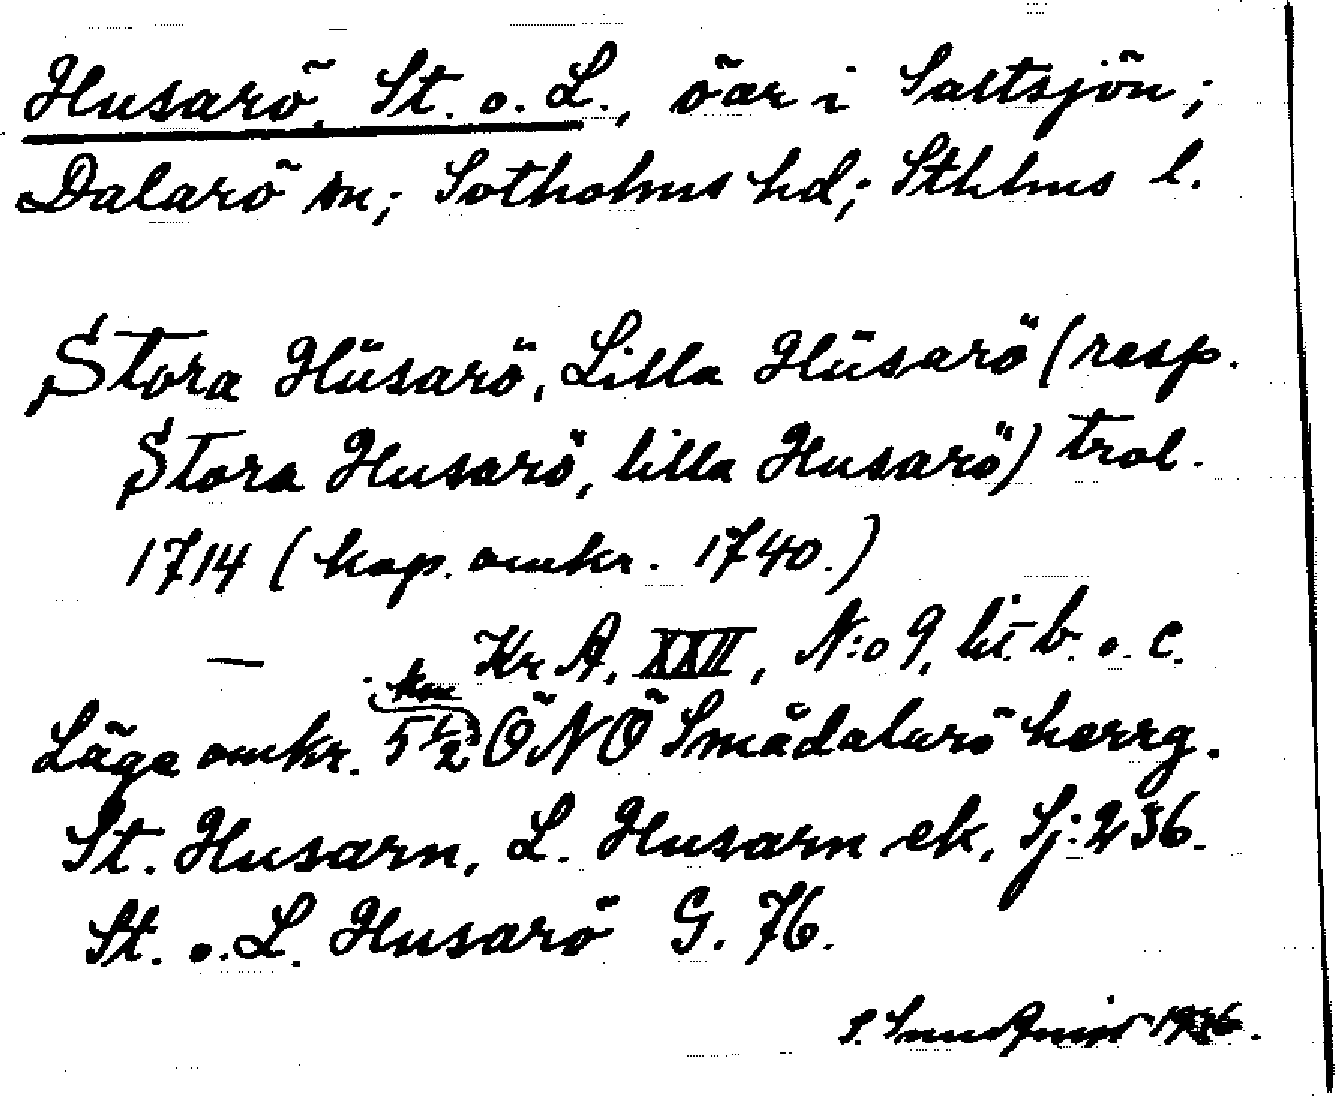 Husarö, St. o. L., öar i Saltsjön;
Dalarö sn; Sotholms hd; Sthlms l.
Stora Hüsarö, Lilla Hüsarö (resp.
Stora Husarö, lilla Husarö) trol.
1714 (kop. omkr. 1740.)
— Kr A, XXII, N:o 9, lit. b. o. c.
Läge omkr. 5 1/2 km ÖNÖ Smådalarö herrg.
St. Husarn, L. Husarn ek, Sj: 236.
St. o. L. Husarö G. 76.
S. 1936.